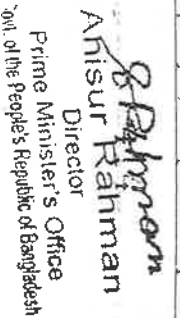 Anisur Rahman
Director
Prime Minister's Office
Govt. of the People's Republic of Bangladesh